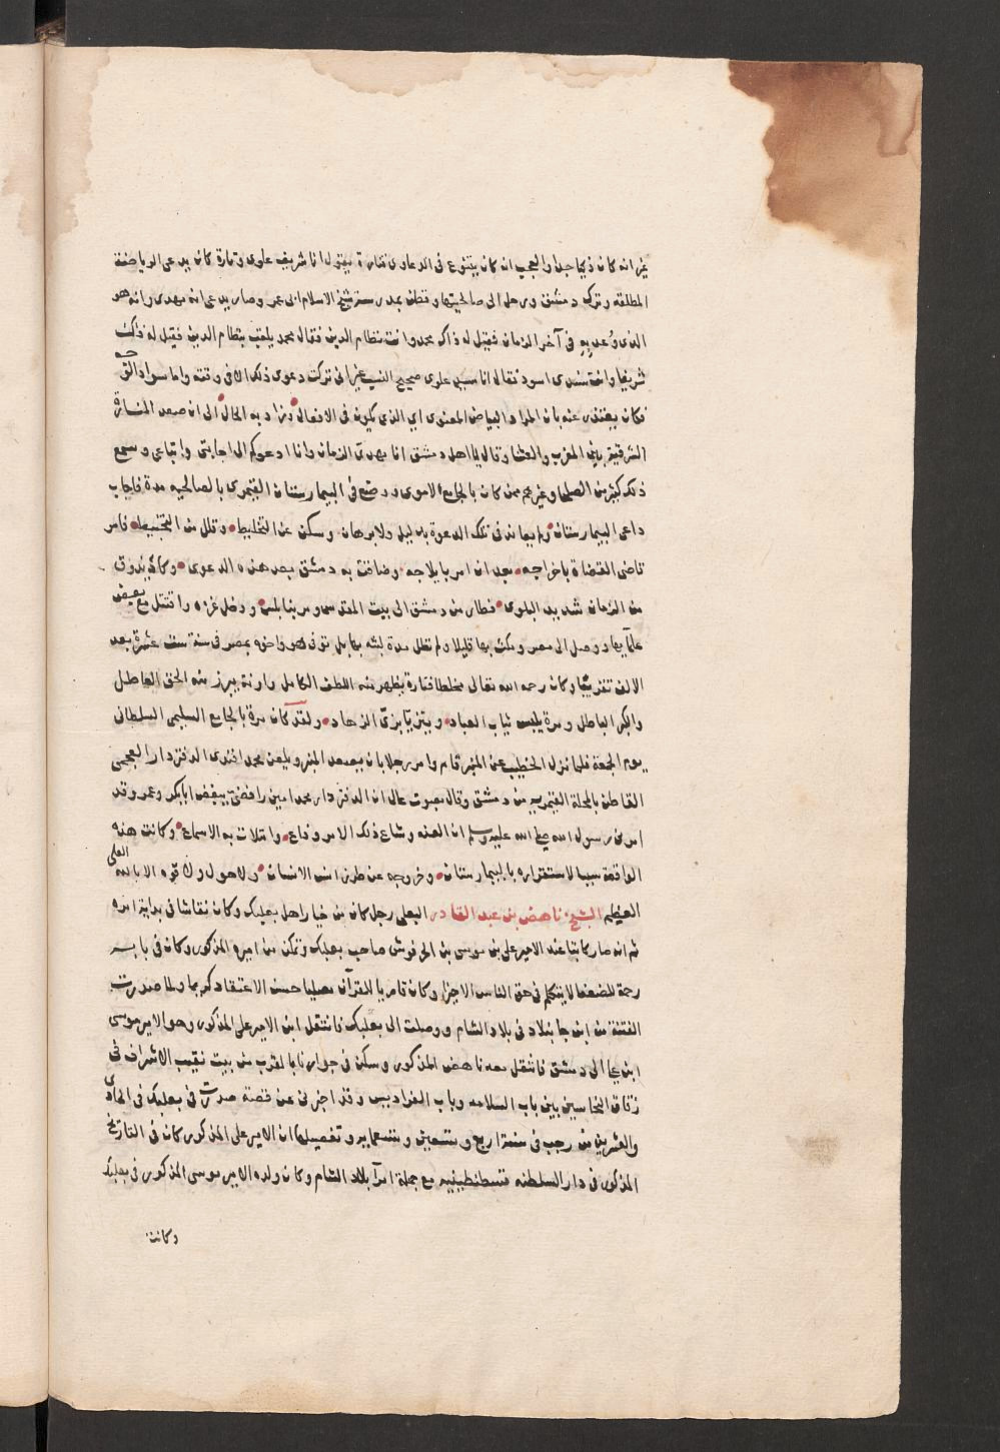 غير انه كان ذكيا جدا والعجب انه كان يتنوع في الدعاوى فتارة يقول انا شريف علوى وتارة كان يدعى الرياضة
المطلقه وترك دمشق ورحل الى صالحيتها وقطن بمدرسة شيخ الاسلام ابى عمر وصار يدعى انه مهدى وانه هو
الذى وُعد به فى آخر الزمان فقيل له ذاك محمد وانت نظام الدين فقال محمد يلقب بنظام الدين فقيل له ذاك
شريفا وانت اسود فقال انا سيد علوى صحيح النسب غير انى تركت دعوى ذلك الا فى وقته واما سواد اللون
فكان يعتذر عنه بان المراد البياض المعنوى اي الذي يكون فى الافعال وزاد به الحال الى ان صعد المنارة
الشرقية بين المغرب والعشا وقال يا اهل دمشق انا مهدى الزمان وانا ادعوكم الى اجابتى واتباعى وسمع
ذلك كثير من الصلحا وغيرهم ممن كان بالجامع الاموى ووضع فى البيمارستان القيمرى بالصالحيه مدة فاجاب
داعى البيمارستان ولم يعاند فى تلك الدعوة بدليل ولا برهان وسكن عن التخليط وقلل من التخبيط فامر
قاضى القضاة باخراجه بعد ان امر بايلاجه وضاقت به دمشق بعد هذه الدعوى وكان يذوق
من الزمان شديد البلوى فطار من دمشق الى بيت المقدس ومر بنابلس ودخل غزه واقتتل مع بعض
علمآيها ووصل الى مصر ومكث بها قليلا ولم تطل مدة لبثه بها بل توفى هو واخوه بمصر فى سنة ست عشرة بعد
الالف تقريبا وكان رحمه الله تعالى مخلطا فتارة يظهر منه اللطف الكامل وآونة يبرز منه الحق العاطل
والكبر الباطل ومرة يلبس ثياب العباد ويتزيّا بزىّ الزهاد ولقد كان مرة بالجامع السليمى السلطانى
يوم الجمعة فلما نزل الخطيب عن المنبر قام وامر رجلا بان يصعد المنبر ويلعن محمد افندى الدفتردار العجمى
القاطن بالمحلة القيمريه من دمشق وقال بصوت عال ان الدفتردار محمد امين رافضىّ يبغض ابابكر وعمر وقد
امرنى رسول الله صلى الله عليه وسلم ان العنه وشاع ذلك الامر وذاع وامتلات به الاسماع وكانت هذه
الواقعة سببا لاستقراره بالبيمارستان وخروجه عن طرز انس الانسان ولا حول ولا قوه الا بالله العلى
العظيم الشيخ ناهض بن عبد القادر البعلى رجل كان من خيار اهل بعلبك وكان نقاشا فى بداية امره
ثم انه صار كاتبا عند الامير على بن موسى بن الحرفوش صاحب بعلبك وتمكن من اميره المذكور وكان فى بابه
رحمة للضعفا لا يتكلم فى حق الناس الا خيرا وكان قاريا للقرآن مصليا حسن الاعتقاد كريما ولما صدرت
الفتنة من ابن جانبلاد فى بلاد الشام ووصلت الى بعلبك فانتقل ابن الامير على المذكور وهو الامير موسى
الى دمشق فانتقل معه ناهض المذكور وسكن فى جوارنا بالقرب من بيت نقيب الاشراف فى
زقاق النحاسين بين باب السلامه وباب الفراديس وقد اخبرنى عن قصة صدرت فى بعلبك فى الحادى
والعشرين من رجب فى سنة اربع وتسعين وتسعمايه وتفصيلها ان الامير على المذكور كان فى التاريخ
المذكور فى دار السلطنه قسطنطينيه مع جملة امرآ بلاد الشام وكان ولده الامير موسى المذكور فى بعلبك
وكانت